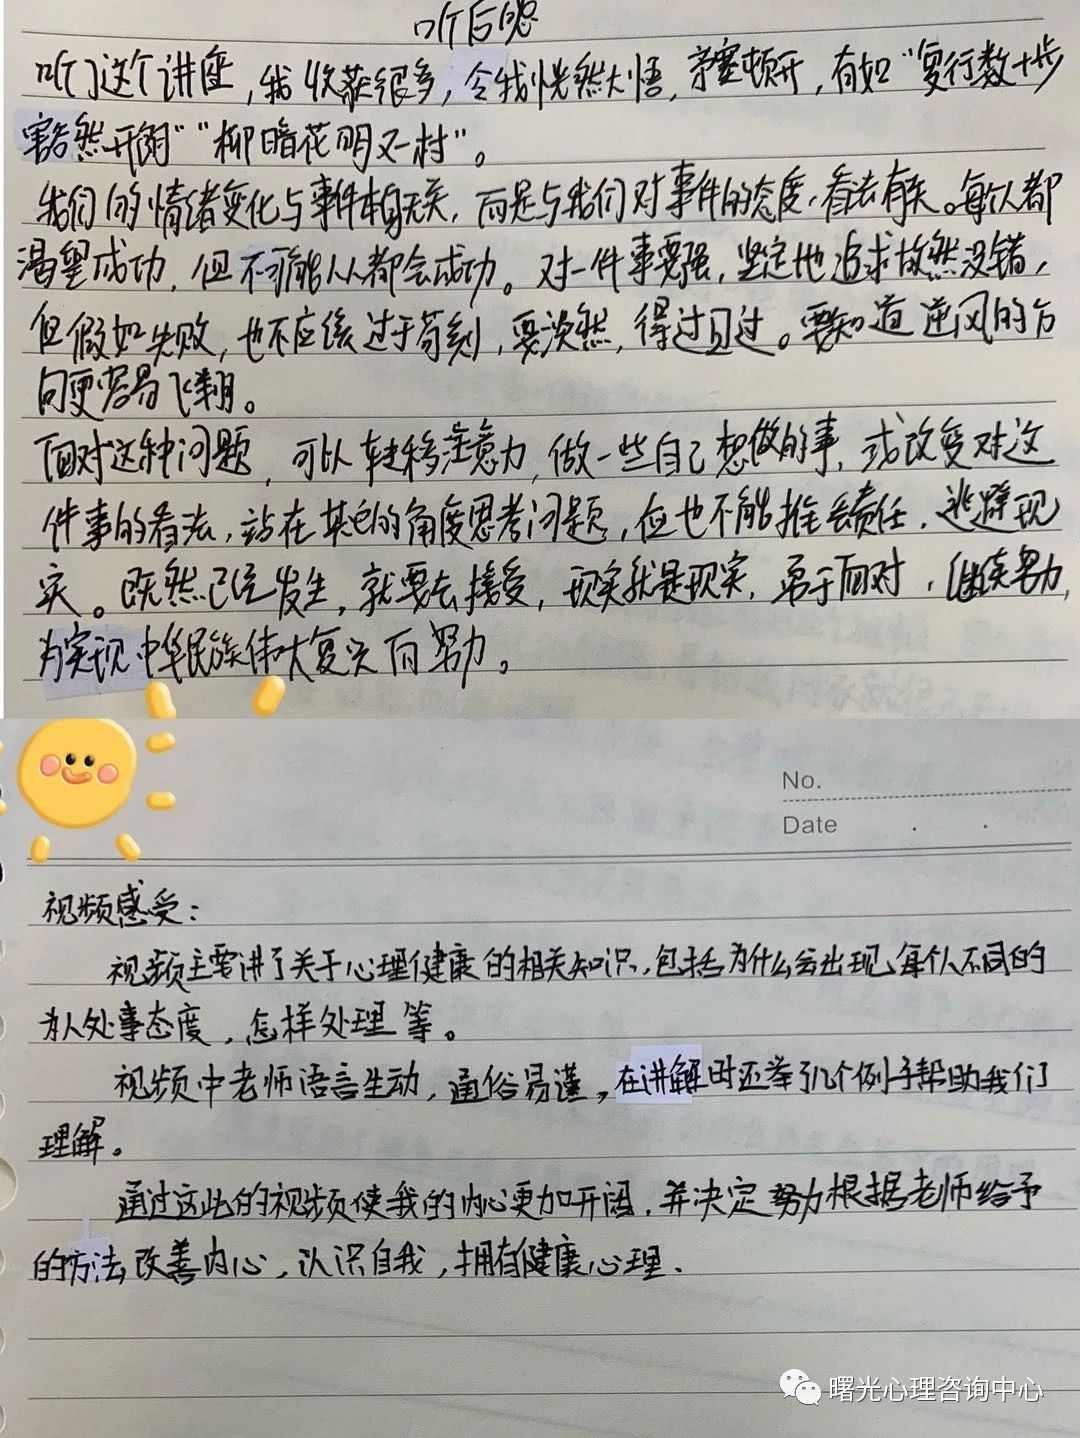 听后感
听了这个讲座，我收获很多，令我恍然大悟，茅塞顿开，有如“复行数十步
豁然开朗”“柳暗花明又一村”。
我们的情绪变化与事件本身无关，而是与我们对事件的态度，看法有关。每个人都
渴望成功，但不可能人人都会成功。对一件事要强，坚定地追求故然没错，
但假如失败，也不应该过于苛刻，要淡然，得过且过。要知道逆风的方
向更容易飞翔。
面对这种问题，可以转移注意力，做一些自己想做的事，或改变对这
件事的看法，站在其它的角度思考问题，但也不能推卸责任，逃避现
实。既然已经发生，就要去接受，现实就是现实，勇于面对，继续努力，
为实现中华民族伟大复兴而努力。
No.
Date
视频感受：
视频主要讲了关于心理健康的相关知识，包括为什么会出现每个人不同的
为人处事态度，怎样处理等。
视频中老师语言生动，通俗易谨，在讲解时还举了几个例子帮助我们
理解。
通过这此的视频使我的内心更加开阔，并决定努力根据老师给予
的方法改善内心，认识自我，拥有健康心理.
曙光心理咨询中心